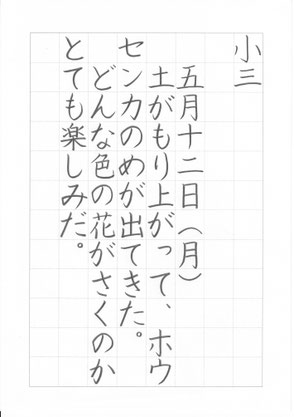 小三
五月十二日（月）
土がもり上がって、ホウ
センカのめが出てきた。
どんな色の花がさくのか
とても楽しみだ。